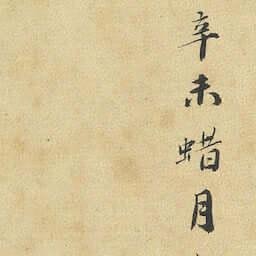 辛未蜡月